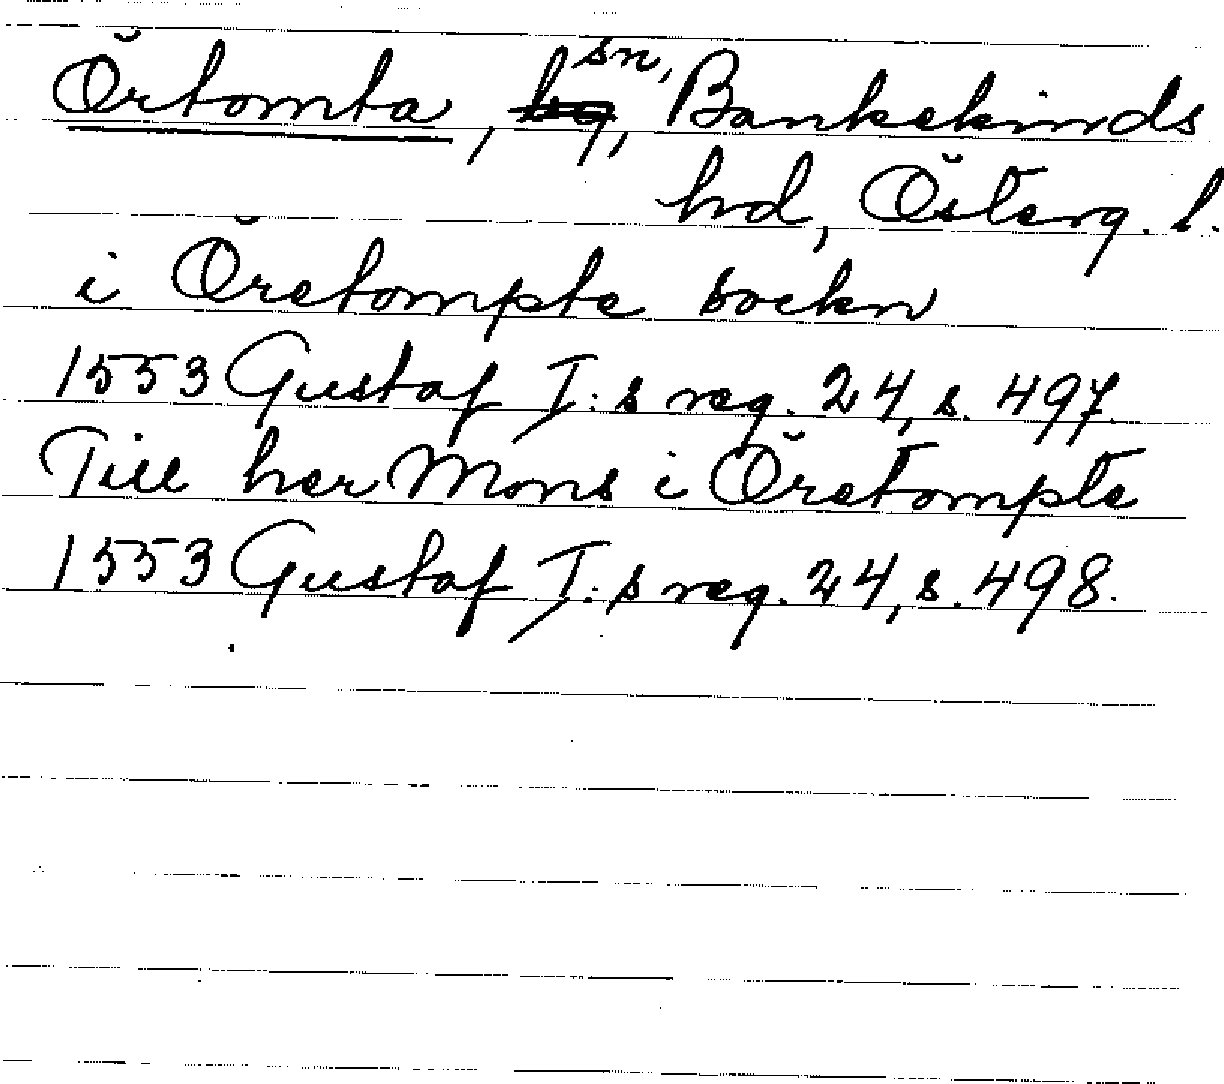 Örtomta, sn, Bankekinds
hd, Österg. l.
i Öretompte sockn
1553 Gustaf I:s reg. 24, s. 497.
Till her Mons i Öretompte
1553 Gustaf I:s reg. 24, s. 498.